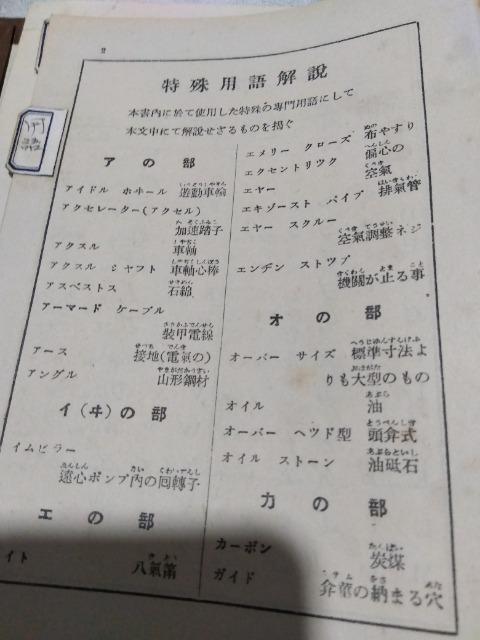 2
特殊用語解説
本書内に於て使用した特殊の専門用語にして
本文中にて解説せざるものを掲ぐ
アの部
アイドル ホヰール 遊動車輪
アクセレーター(アクセル)
加速踏子
アクスル 車軸
アクスル シヤフト 車軸心棒
アスベストス 石綿
アーマード ケーブル
装甲電線
アース 接地(電氣の)
アングル 山形鋼材
イ(ヰ)の部
イムピラー
遠心ポンプ内の回轉子
エの部
イト 八氣筩
エメリー クローズ 布やすり
エクセントリツク 偏心の
エヤー 空氣
エキゾースト パイプ 排氣管
エヤー スクルー
空氣調整ネジ
エンヂン ストツプ
機關が止る事
オの部
オーバー サイズ 標準寸法よ
りも大型のもの
オイル 油
オーバー ヘツド型 頭弁式
オイル ストーン 油砥石
カの部
カーボン 炭煤
ガイド 弁莖の納まる穴